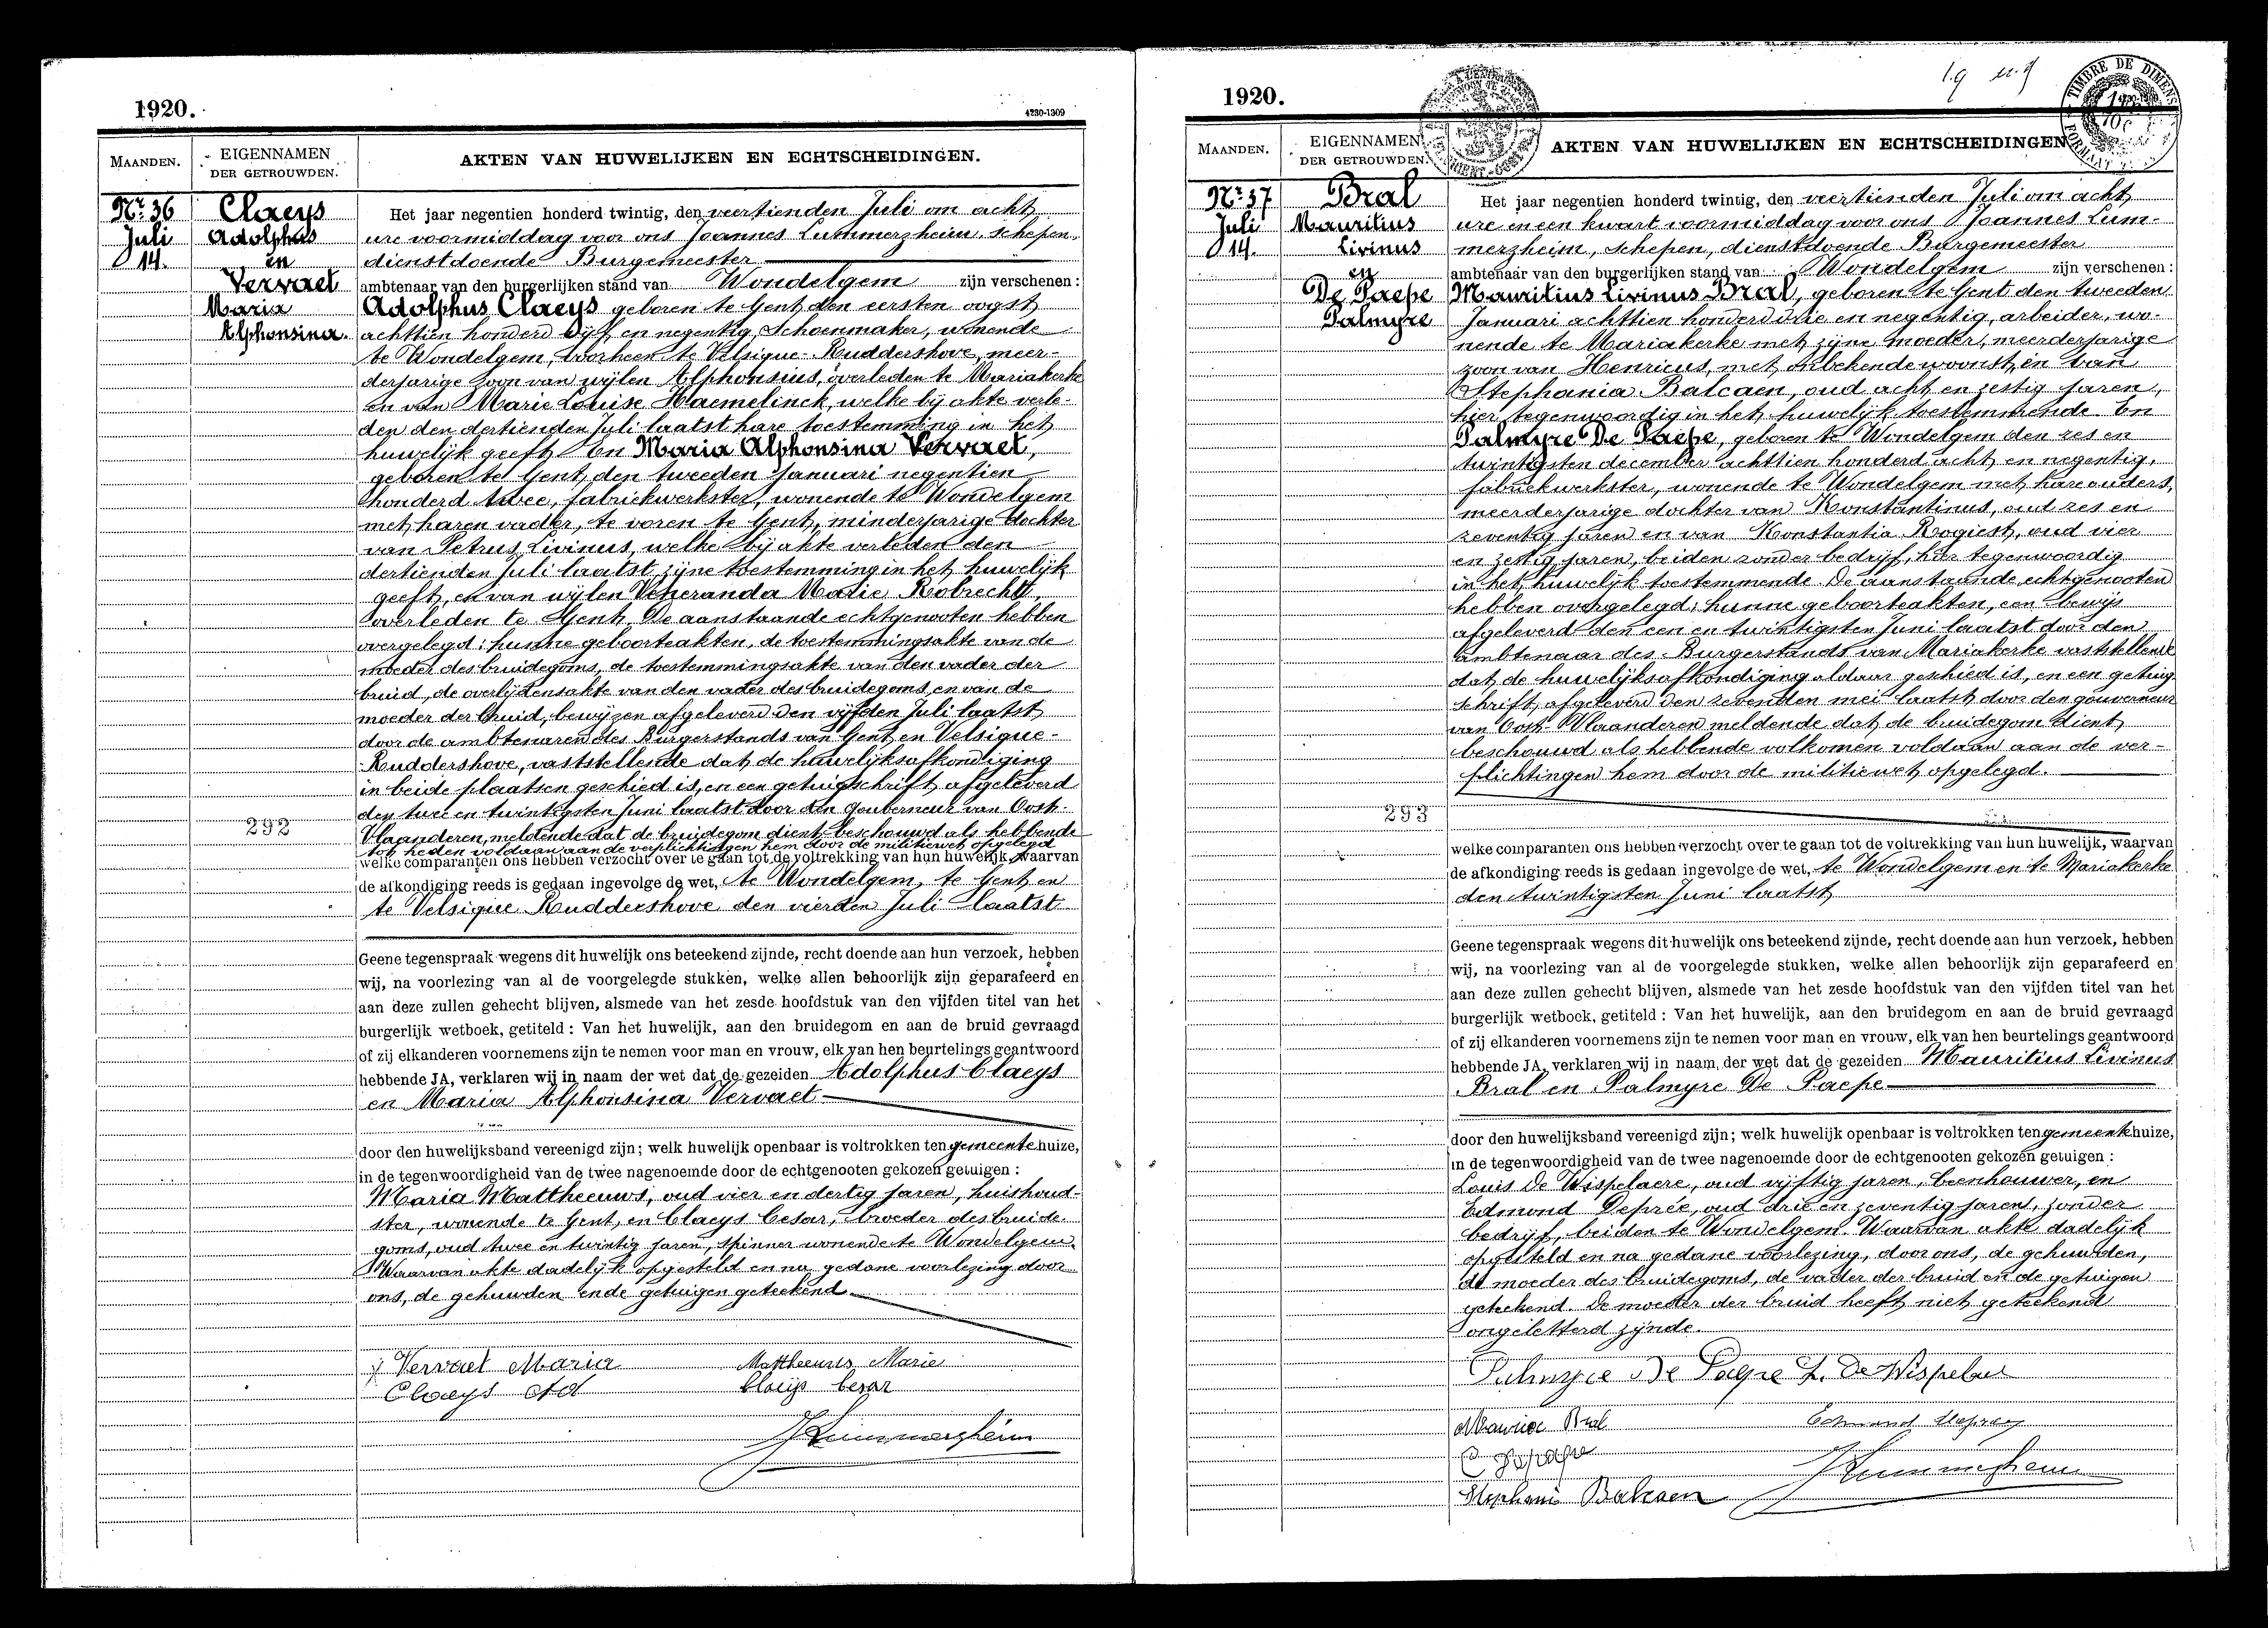 1920.
4230-1309
MAANDEN.
EIGENNAMEN
DER GETROUWDEN.
AKTEN VAN HUWELIJKEN EN ECHTSCHEIDINGEN.
Nr. 36
Juli
14.
Claeys
Adolphus
en
Vervaet
Maria
Alphonsina.
292
Het jaar negentien honderd twintig, den veertienden Juli om acht
ure voormiddag voor ons Joannes Lummerzheim, schepen,
dienstdoende Burgemeester
ambtenaar van den burgerlijken stand van Wondelgem zijn verschenen :
Adolphus Claeys geboren te Gent, den eersten oogst
achttien honderd vijf en negentig, Schoenmaker, wonende
te Wondelgem, voorheen te Velsique-Ruddershove, meer-
derjarige zoon van wijlen Alphonsius, overleden te Mariakerke
en van Marie Louise Haemelinck, welke bij akte verle-
den den dertienden Juli laatst hare toestemming in het
huwelijk geeft En Maria Alphonsina Vervaet,
geboren te Gent, den tweeden Januari negentien
honderd twee, fabriekwerkster, wonende te Wondelgem
met haren vader, te voren te Gent, minderjarige dochter
van Petrus Livinus, welke bij akte verleden den
dertienden Juli laatst zijne toestemming in het huwelijk
geeft, en van wijlen Veneranda Marie Robrecht,
overleden te Gent. De aanstaande echtgenooten hebben
overgelegd : hunne geboorteakten, de toestemmingsakte van de
moeder des bruidegoms, de toestemmingsakte van den vader der
bruid, de overlijdensakte van den vader des bruidegoms en van de
moeder der bruid, bewijzen afgeleverd den vijfden Juli laatst
door de ambtenaren des Burgerstands van Gent en Velsique-
Ruddershove, vaststellende dat de huwelijksafkondiging
in beide plaatsen geschied is, en een getuigschrift afgeleverd
den twee en twintigsten Juni laatst door den Gouverneur van Oost-
Vlaanderen, meldende dat de bruidegom dient beschouwd als hebbende
tot heden voldaan aan de verplichtingen hem door de militiewet opgelegd
welke comparanten ons hebben verzocht over te gaan tot de voltrekking van hun huwelijk, waarvan
de afkondiging reeds is gedaan ingevolge de wet, te Wondelgem, te Gent en
te Velsique Ruddershove den vierden Juli laatst
Geene tegenspraak wegens dit huwelijk ons beteekend zijnde, recht doende aan hun verzoek, hebben
wij, na voorlezing van al de voorgelegde stukken, welke allen behoorlijk zijn geparafeerd en
aan deze zullen gehecht blijven, alsmede van het zesde hoofdstuk van den vijfden titel van het
burgerlijk wetboek, getiteld : Van het huwelijk, aan den bruidegom en aan de bruid gevraagd
of zij elkanderen voornemens zijn te nemen voor man en vrouw, elk van hen beurtelings geantwoord
hebbende JA, verklaren wij in naam der wet dat de gezeiden Adolphus Claeys
en Maria Alphonsina Vervaet
door den huwelijksband vereenigd zijn; welk huwelijk openbaar is voltrokken ten gemeentehuize,
in de tegenwoordigheid van de twee nagenoemde door de echtgenooten gekozen getuigen :
Maria Mattheeuws, oud vier en dertig jaren, huishoud-
ster, wonende te Gent, en Claeys Cesar, broeder des bruide-
goms, oud twee en twintig jaren, spinner wonende te Wondelgem.
Waarvan akte dadelijk opgesteld en na gedane voorlezing door
ons, de gehuwden en de getuigen geteekend.
Vervaet Maria
Mattheeuws Marie
Claeys Ad
Claeys Cesar
JLummerzheim
1920.
TIMBRE DE DIMENS
FORMAAT
MAANDEN.
EIGENNAMEN
DER GETROUWDEN.
AKTEN VAN HUWELIJKEN EN ECHTSCHEIDINGEN
Nr. 37
Juli
14.
Bral
Mauritius
Livinus
en
De Paepe
Palmyre
293
Het jaar negentien honderd twintig, den veertienden Juli om acht
ure en een kwart voormiddag voor ons Joannes Lum-
merzheim, schepen, dienstdoende Burgemeester
ambtenaar van den burgerlijken stand van Wondelgem zijn verschenen :
Mauritius Livinus Bral, geboren te Gent den tweeden
Januari achttien honderd drie en negentig, arbeider, wo-
nende te Mariakerke met zijne moeder, meerderjarige
zoon van Henricus, met onbekende woonst, en van
Stephania Balcaen, oud acht en zestig jaren,
hier tegenwoordig in het huwelijk toestemmende. En
Palmyre De Paepe, geboren te Wondelgem den zes en
twintigsten december achttien honderd acht en negentig,
fabriekwerkster, wonende te Wondelgem met hare ouders,
meerderjarige dochter van Konstantinus, oud zes en
zeventig jaren en van Konstantia Rogiest, oud vier
en zestig jaren, beiden zonder bedrijf, hier tegenwoordig
in het huwelijk toestemmende. De aanstaande echtgenooten
hebben overgelegd : hunne geboorteakten, een bewijs
afgeleverd den een en twintigsten Juni laatst door den
ambtenaar des Burgerstands van Mariakerke vaststellende
dat de huwelijksafkondiging aldaar geschied is, en een getuig-
schrift afgeleverd den zevenden mei laatst door den gouverneur
van Oost-Vlaanderen meldende dat de bruidegom dient
beschouwd als hebbende volkomen voldaan aan de ver-
plichtingen hem door de militiewet opgelegd.
welke comparanten ons hebben verzocht over te gaan tot de voltrekking van hun huwelijk, waarvan
de afkondiging reeds is gedaan ingevolge de wet, te Wondelgem en te Mariakerke
den twintigsten Juni laatst
Geene tegenspraak wegens dit huwelijk ons beteekend zijnde, recht doende aan hun verzoek, hebben
wij, na voorlezing van al de voorgelegde stukken, welke allen behoorlijk zijn geparafeerd en
aan deze zullen gehecht blijven, alsmede van het zesde hoofdstuk van den vijfden titel van het
burgerlijk wetboek, getiteld : Van het huwelijk, aan den bruidegom en aan de bruid gevraagd
of zij elkanderen voornemens zijn te nemen voor man en vrouw, elk van hen beurtelings geantwoord
hebbende JA, verklaren wij in naam der wet dat de gezeiden Mauritius Livinus
Bral en Palmyre De Paepe
door den huwelijksband vereenigd zijn; welk huwelijk openbaar is voltrokken ten gemeentehuize,
in de tegenwoordigheid van de twee nagenoemde door de echtgenooten gekozen getuigen :
Louis De Wispelaere, oud vijftig jaren, beenhouwer, en
Edmond Deprée, oud drie en zeventig jaren, zonder
bedrijf, beiden te Wondelgem. Waarvan akte dadelijk
opgesteld en na gedane voorlezing, door ons, de gehuwden,
de moeder des bruidegoms, de vader der bruid en de getuigen
geteekend. De moeder der bruid heeft niet geteekend
ongeletterd zijnde.
Palmyre De Paepe L. De Wispelaer
Maurice Bral
Edmond
Stephanie Balcaen
JLummerzheim